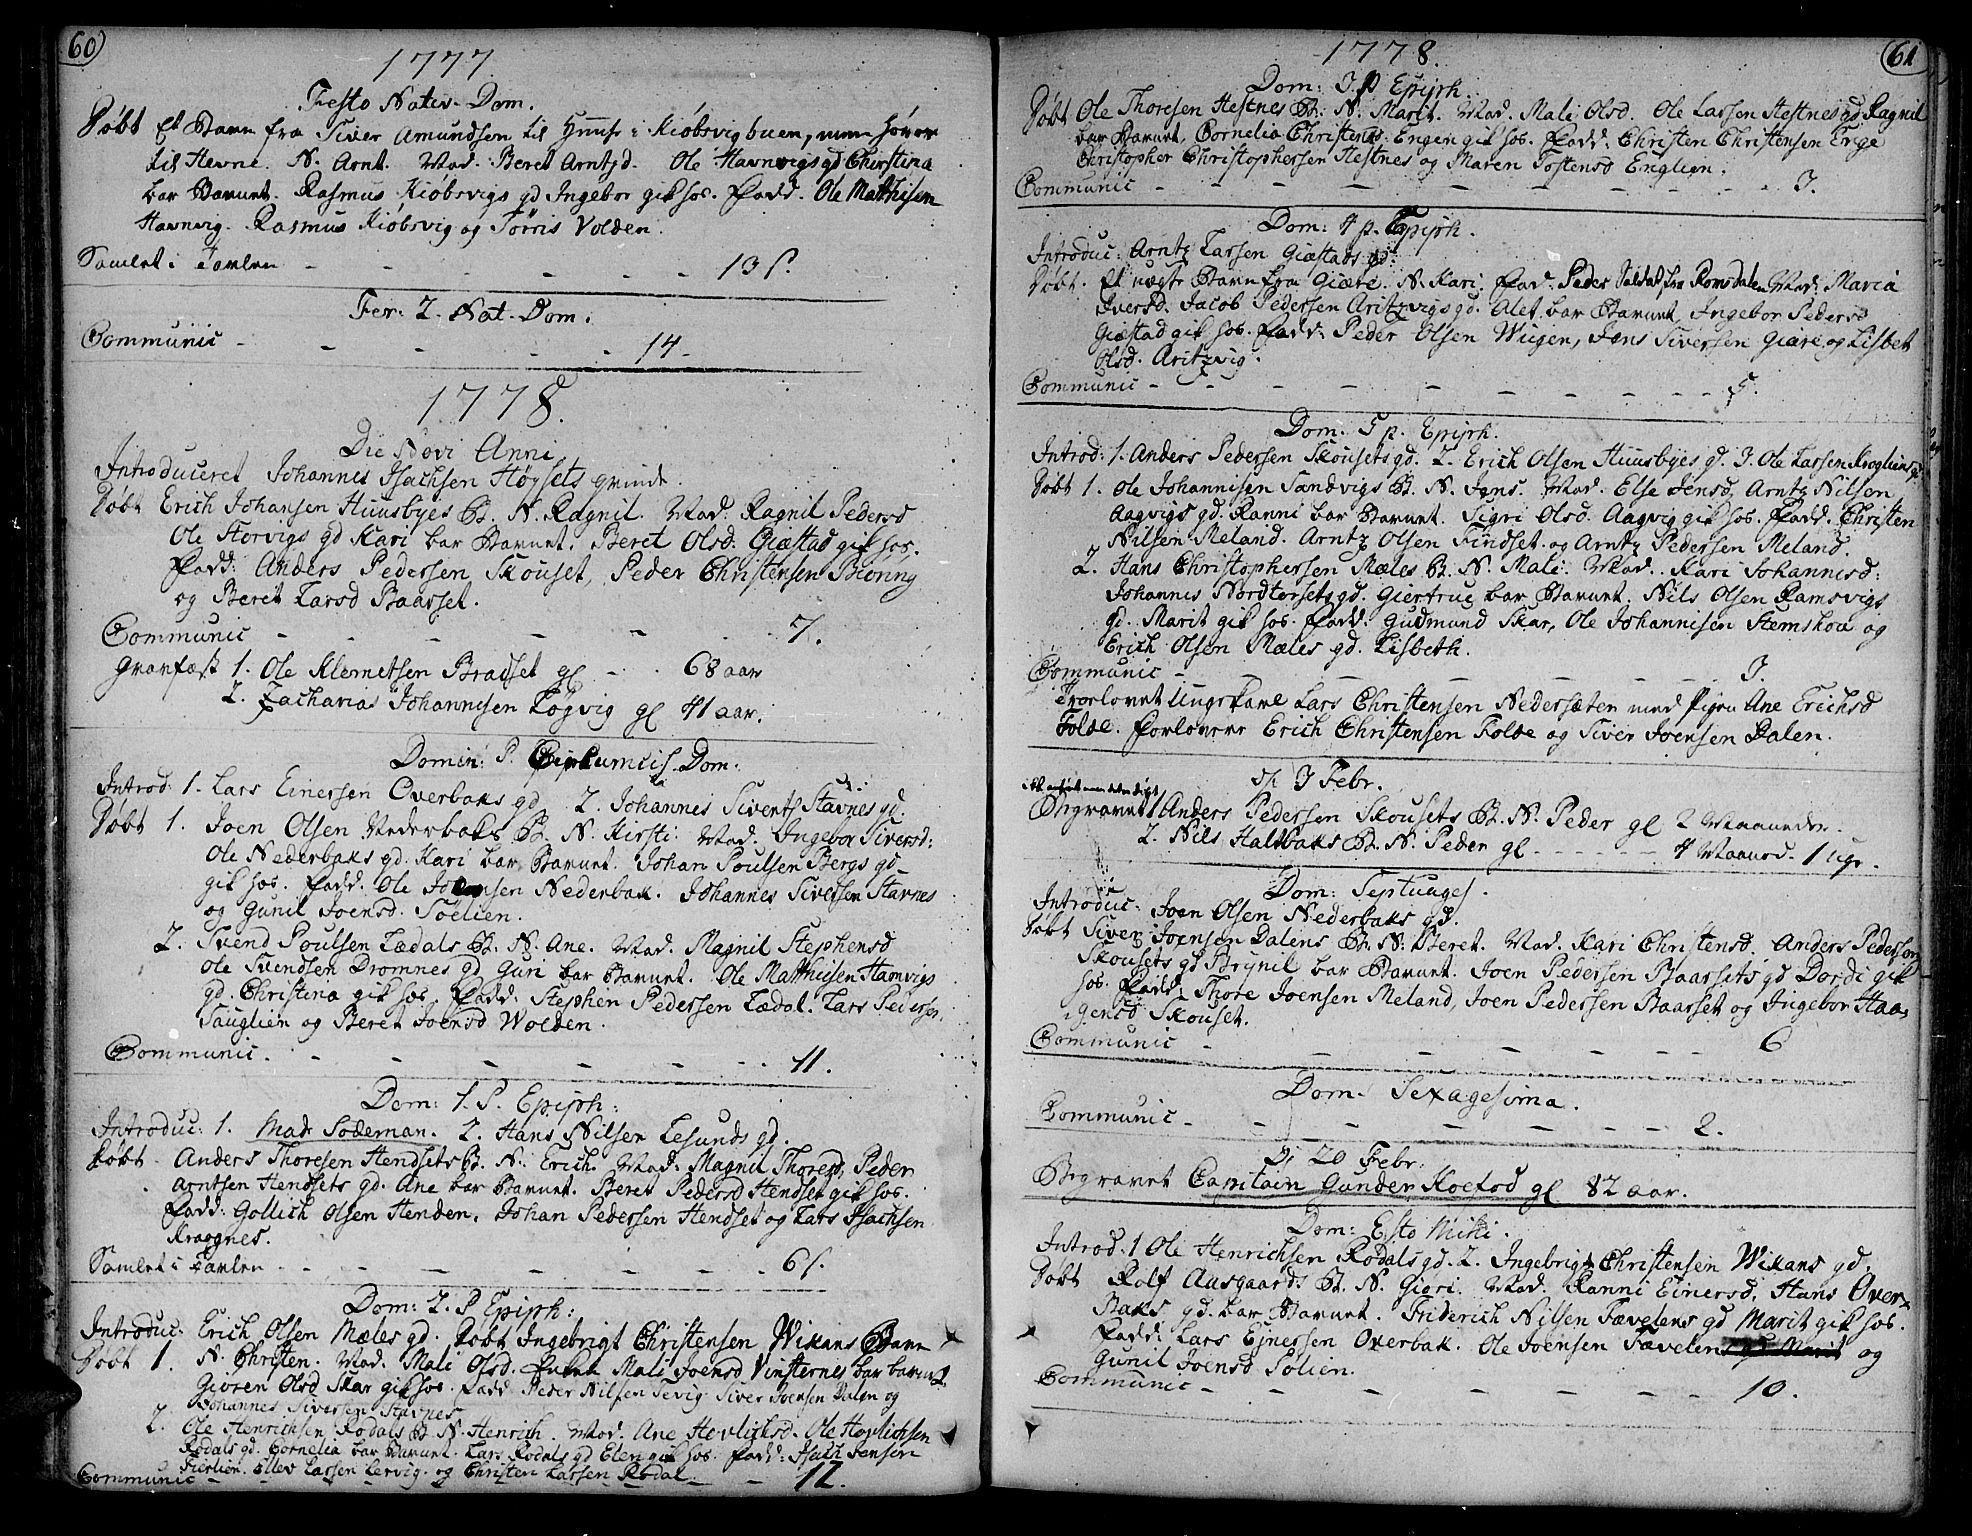 60
1777.
Festo Nativ. Dom.
Døbt Et Barn fra Siver Amundsen til Huuse i Kiøbsvigbuen, men hører
til Hevne. N. Arnt. Mod. Beret Arntzd. Ole Havnvigs gd Christina
bar Barnet. Rasmus Kiøbsvigs gd Ingebor gik hos. Fadd. Ole Matthisen
Havnvig. Rasmus Kiøbsvig og Tørris Volden.
Samlet i Tavlen - - - - - 13 s.
Fer: 2. Nat. Dom.
Communic - - - - - 14 -
1778.
Die Novi Anni
Introduceret Johannes Isachsen Høysets qvinde.
Døbt Erich Johansen Huusbyes B. N. Ragnil. Mod. Ragnil Pedersd
Ole Storvigs gd Kari bar Barnet. Beret Olsd. Giæstad gik hos.
Fadd: Anders Pedersen Skouset, Peder Christensen Biering
og Beret Larsd Baarset.
Communic - - - - - 7.
Gravfæst 1. Ole Klemetsen Bradset gl - - 68 aar
2. Zacharias Johannesen Løgvig gl 41 aar.
Domin: P. Dom.
Introd: 1. Lars Einersen Overbaks gd 2. Johannes Siverts Stavnes gd.
Døbt 1. Joen Olsen Nederbaks B. N. Kirsti Mod. Ingebor Siversd:
Ole Nederbaks gd. Kari bar Barnet. Johan Poulsen Bergs gd
gik hos. Fadd. Ole Nederbak. Johannes Siversen Stavnes
og Gunil Joensd. Søelien.
2. Svend Poulsen Lædals B. N. Ane. Mod. Magnil Stephensd
Ole Svendsen Dromnes gd Guri bar Barnet. Ole Matthisen Hamvigs
gd. Christina gik hos. Fadd: Stephen Pedersen Lædal. Lars Peders
Sauglien og Beret Joensd Wolden.
Communic. - - - - - 11.
Dom: 1. P. Epiph:
Introduc: 1. Mad: Sodeman. 2. Hans Nilsen Lesunds gd.
Døbt Anders Thoresen Hendsets B. N. Erich. Mod: Magnil Thoresd, Peder
Arntsen Hendsets gd. Ane bar Barnet. Beret Pedersd Hendset gik hos.
Fadd: Gollich Olsen Henden, Johan Pedersen Hendset og Lars Isachsen
Kraagnes.
Samlet i Tavlen - - - - - 6 s.
Dom: 2. P Epiph:
Introduc: Erich Olsen Mæles gd. Døbt Ingebrigt Christensen Wikans Barn
Døbt 1. N. Christen. Mod. Mali Olsd. Mali Joensd Vinsternes bar barnet.
Giøren Olsd Skar gik hos. Fadd Peder Nilsen Sevig. Siver Joensen Dalen og
Johannes Siversen Stavnes
2. Ole Henrichsen Rodals B. N. Henrich. Mod. Ane Hovlichsd. Ole Hovlichsen
Rodals gd. Cornelia bar Barnet. Lars Rodals gd Elen gik hos. Fadd: Isach Jensen
Fierlien. Ellev Larsen Lervig. og Christen Larsen Rodal.
Communic - - - - - 12.
61
1778.
Dom: 3. P Epiph.
Døbt Ole Thoresen Hestnes B: N. Marit. Mod. Mali Olsd. Ole Larsen Hestnes gd Ragnil
bar Barnet. Cornelia Christensd. Engen gik hos. Fadd: Christen Christensen Enge
Christopher Christophersen Hestnes og Maren Tostensd Englien.
Communic - - - - - 3.
Dom: 4 p. Epiph.
Introduc: Arntz Larsen Giæstads gd:
Døbt. Et uægte Barn fra Giære. N. Kari. Fad: Peder Isdal fra Romsdalen Mod: Maria
Iversd. Jacob Pedersen Aritzvigs gd. Alet bar Barnet, Ingebor Pedersd
Giæstad gik hos. Fadd: Peder Olsen Wiigen, Jens Siversen Giære og Lisbet
Olsd. Aritzvig.
Communic - - - - - 5.
Dom. 5 p. Epiph.
Introd: 1. Anders Pedersen Skousets gd. 2. Erich Olsen Huusbyes gd. 3. Ole Larsen Kroglians gd.
Døbt 1. Ole Johannisen Sandvigs B. N. Jens. Mod. Else Jensd, Arntz Nilsen
Aagvigs gd. Ranni bar Barnet. Sigri Olsd. Aagvig gik hos. Fadd. Christen
Nilsen Meland. Arntz Olsen Findset. og Arntz Pedersen Meland.
2. Hans Christophersen Mæles B. N. Mali. Mod. Kari Johannisd:
Johannis Nordtorsets gd. Giertrue bar Barnet. Nils Olsen Ramsvigs
gd. Marit gik hos. Fadd: Gudmund Skar, Ole Johannisen Stemshou og
Erich Olsen Mæles gd. Lisbeth.
Communic - - - - - 3.
Trorlovet Ungskarl Lars Christensen Nedersæten med Pigen Ane Erichsd
Folde. Forlovere Erich Christensen Folde og Siver Joensen Dalen.
d. 3 Febr.
Begravet 1 Anders Pedersen Skousets B. N. Peder gl 2 Maaneder.
2. Nils Haltbaks B. N. Peder gl - - - - - 4 Maaned. 1 uge.
Dom: Septuages.
Introduc: Joen Olsen Nederbaks gd.
Døbt Siver Joensen Dalens B. N. Beret. Mod. Kari Christensd. Anders Pedersen
Skousets gd Brynil bar Barnet. Joen Pedersen Baarsets gd Dordi gik
hos. Fadd: Thore Joensen Meland, Joen Pedersen Baarset og Ingebor Haa-
gensd Skouset.
Communic - - - - - 6
Dom. Sexagesima.
Communic - - - - - 2.
D 20 Febr.
Begravet Capitain Gunder Koefod gl 82 aar.
Dom: Esto Mihi.
Introd. 1 Ole Henrichsen Rodals gd. 2. Ingebrigt Christensen Wikans gd.
Døbt Rolf Ausgaards B. N. Giøri. Mod. Ranni Einersd. Hans Over-
baks gd. bar Barnet. Friderich Nilsen Fævelens gd Marit gik hos.
Fadd: Lars Ejnersen Overbak. Ole Joensen Fævelen og
Gunil Joensd Solien.
Communic - - - - - 10.